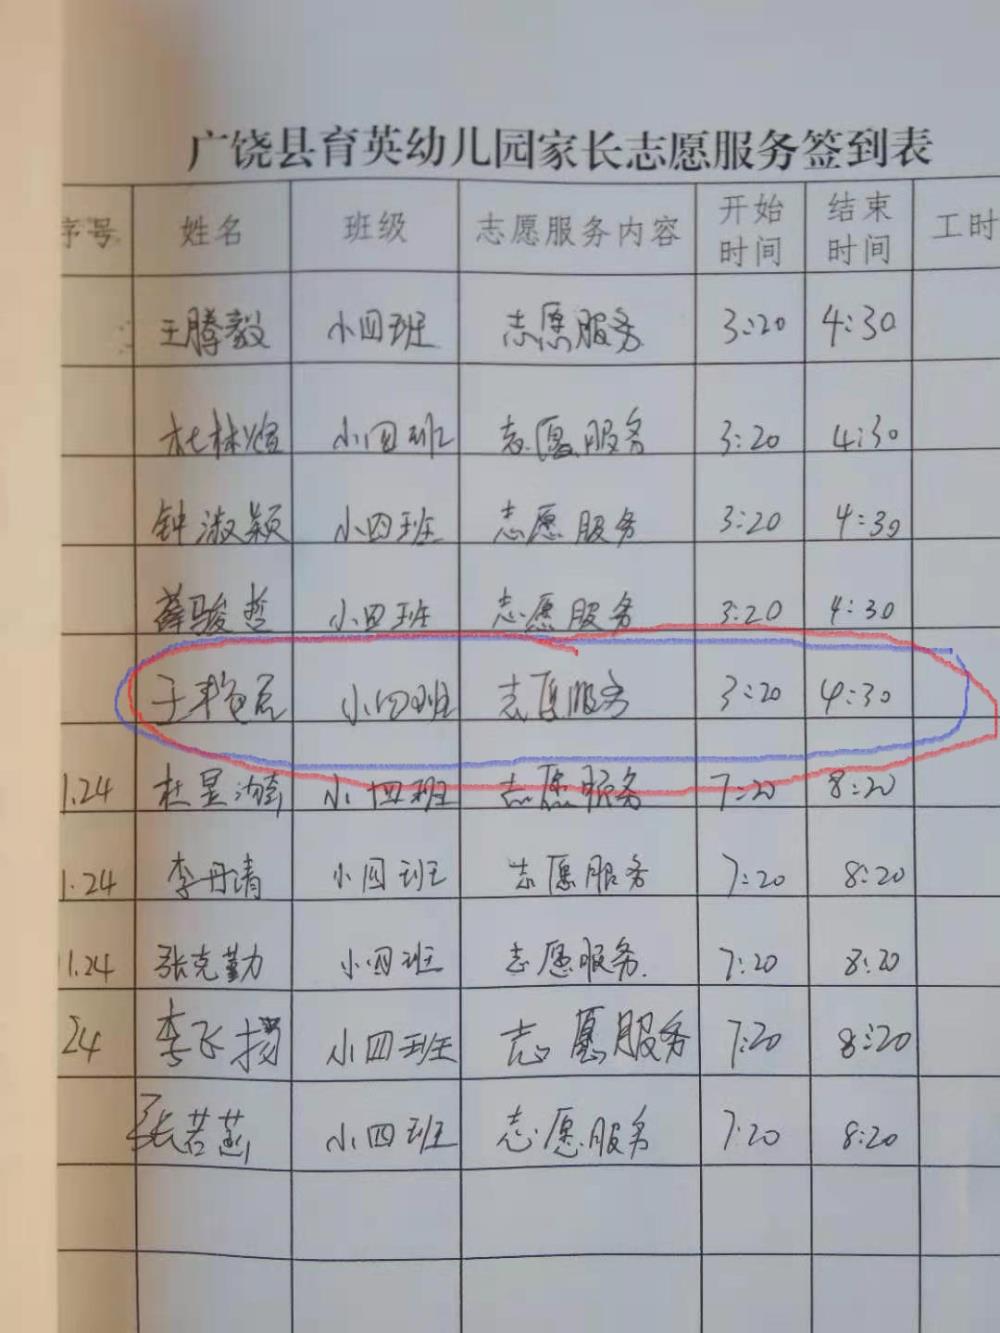 广饶县育英幼儿园家长志愿服务签到表
序号 姓名 班级 志愿服务内容 开始时间 结束时间 工时
王腾毅 小四班 志愿服务 3:20 4:30
杜林煊 小四班 志愿服务 3:20 4:30
钟淑颖 小四班 志愿服务 3:20 4:30
薛骏哲 小四班 志愿服务 3:20 4:30
小四班 志愿服务 3:20 4:30
1.24 杜昱 小四班 志愿服务 7:20 8:20
1.24 李丹清 小四班 志愿服务 7:20 8:20
1.24 张克勤 小四班 志愿服务 7:20 8:20
24 李飞 小四班 志愿服务 7:20 8:20
张若菡 小四班 志愿服务 7:20 8:20